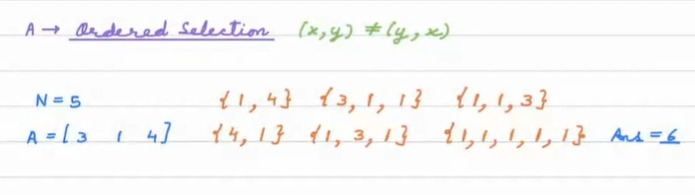 A → Ordered Selection (x,y) ≠ (y,x)
N = 5 {1, 4} {3, 1, 1} {1, 1, 3}
A = [3 1 4] {4, 1} {1, 3, 1} {1, 1, 1, 1, 1} Ans = 6